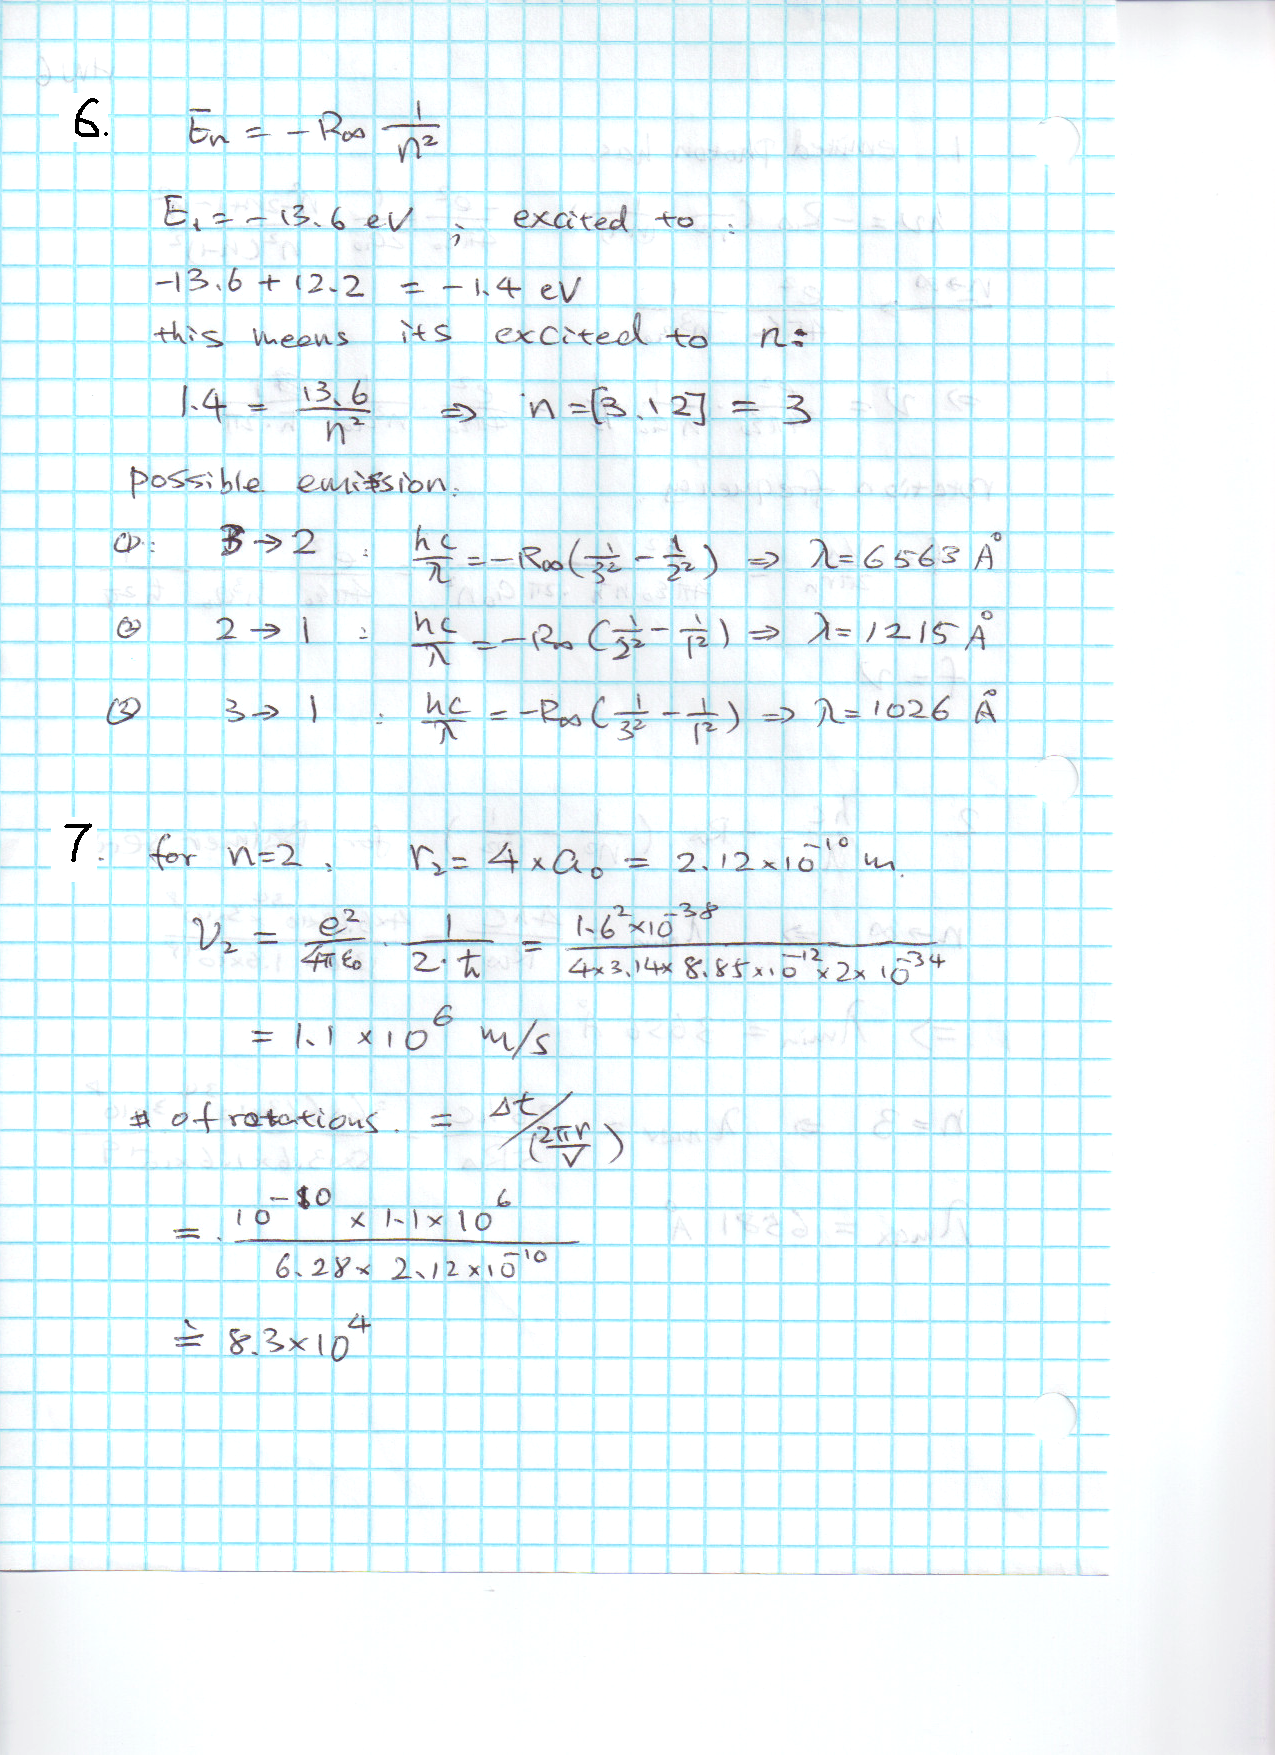 6. Eₙ = -R∞ 1/n²
E₁ = -13.6 eV ; excited to :
-13.6 + 12.2 = -1.4 eV
this means its excited to n:
1.4 = 13.6/n² ⇒ n = [3.12] = 3
possible emission:
①: 3→2 : hc/λ = -R∞(1/3² - 1/2²) ⇒ λ = 6563 Å
② 2→1 : hc/λ = -R∞(1/2² - 1/1²) ⇒ λ = 1215 Å
③ 3→1 : hc/λ = -R∞(1/3² - 1/1²) ⇒ λ = 1026 Å
7. for n=2, r₂ = 4×a₀ = 2.12×10⁻¹⁰ m.
V₂ = e²/4πε₀ · 1/2·ħ = 1.6²×10⁻³⁸/4×3.14×8.85×10⁻¹²×2×10⁻³⁴
= 1.1×10⁶ m/s
# of rotations. = Δt/(2πr/v)
= 10⁻¹⁰ × 1.1×10⁶/6.28×2.12×10⁻¹⁰
≐ 8.3×10⁴